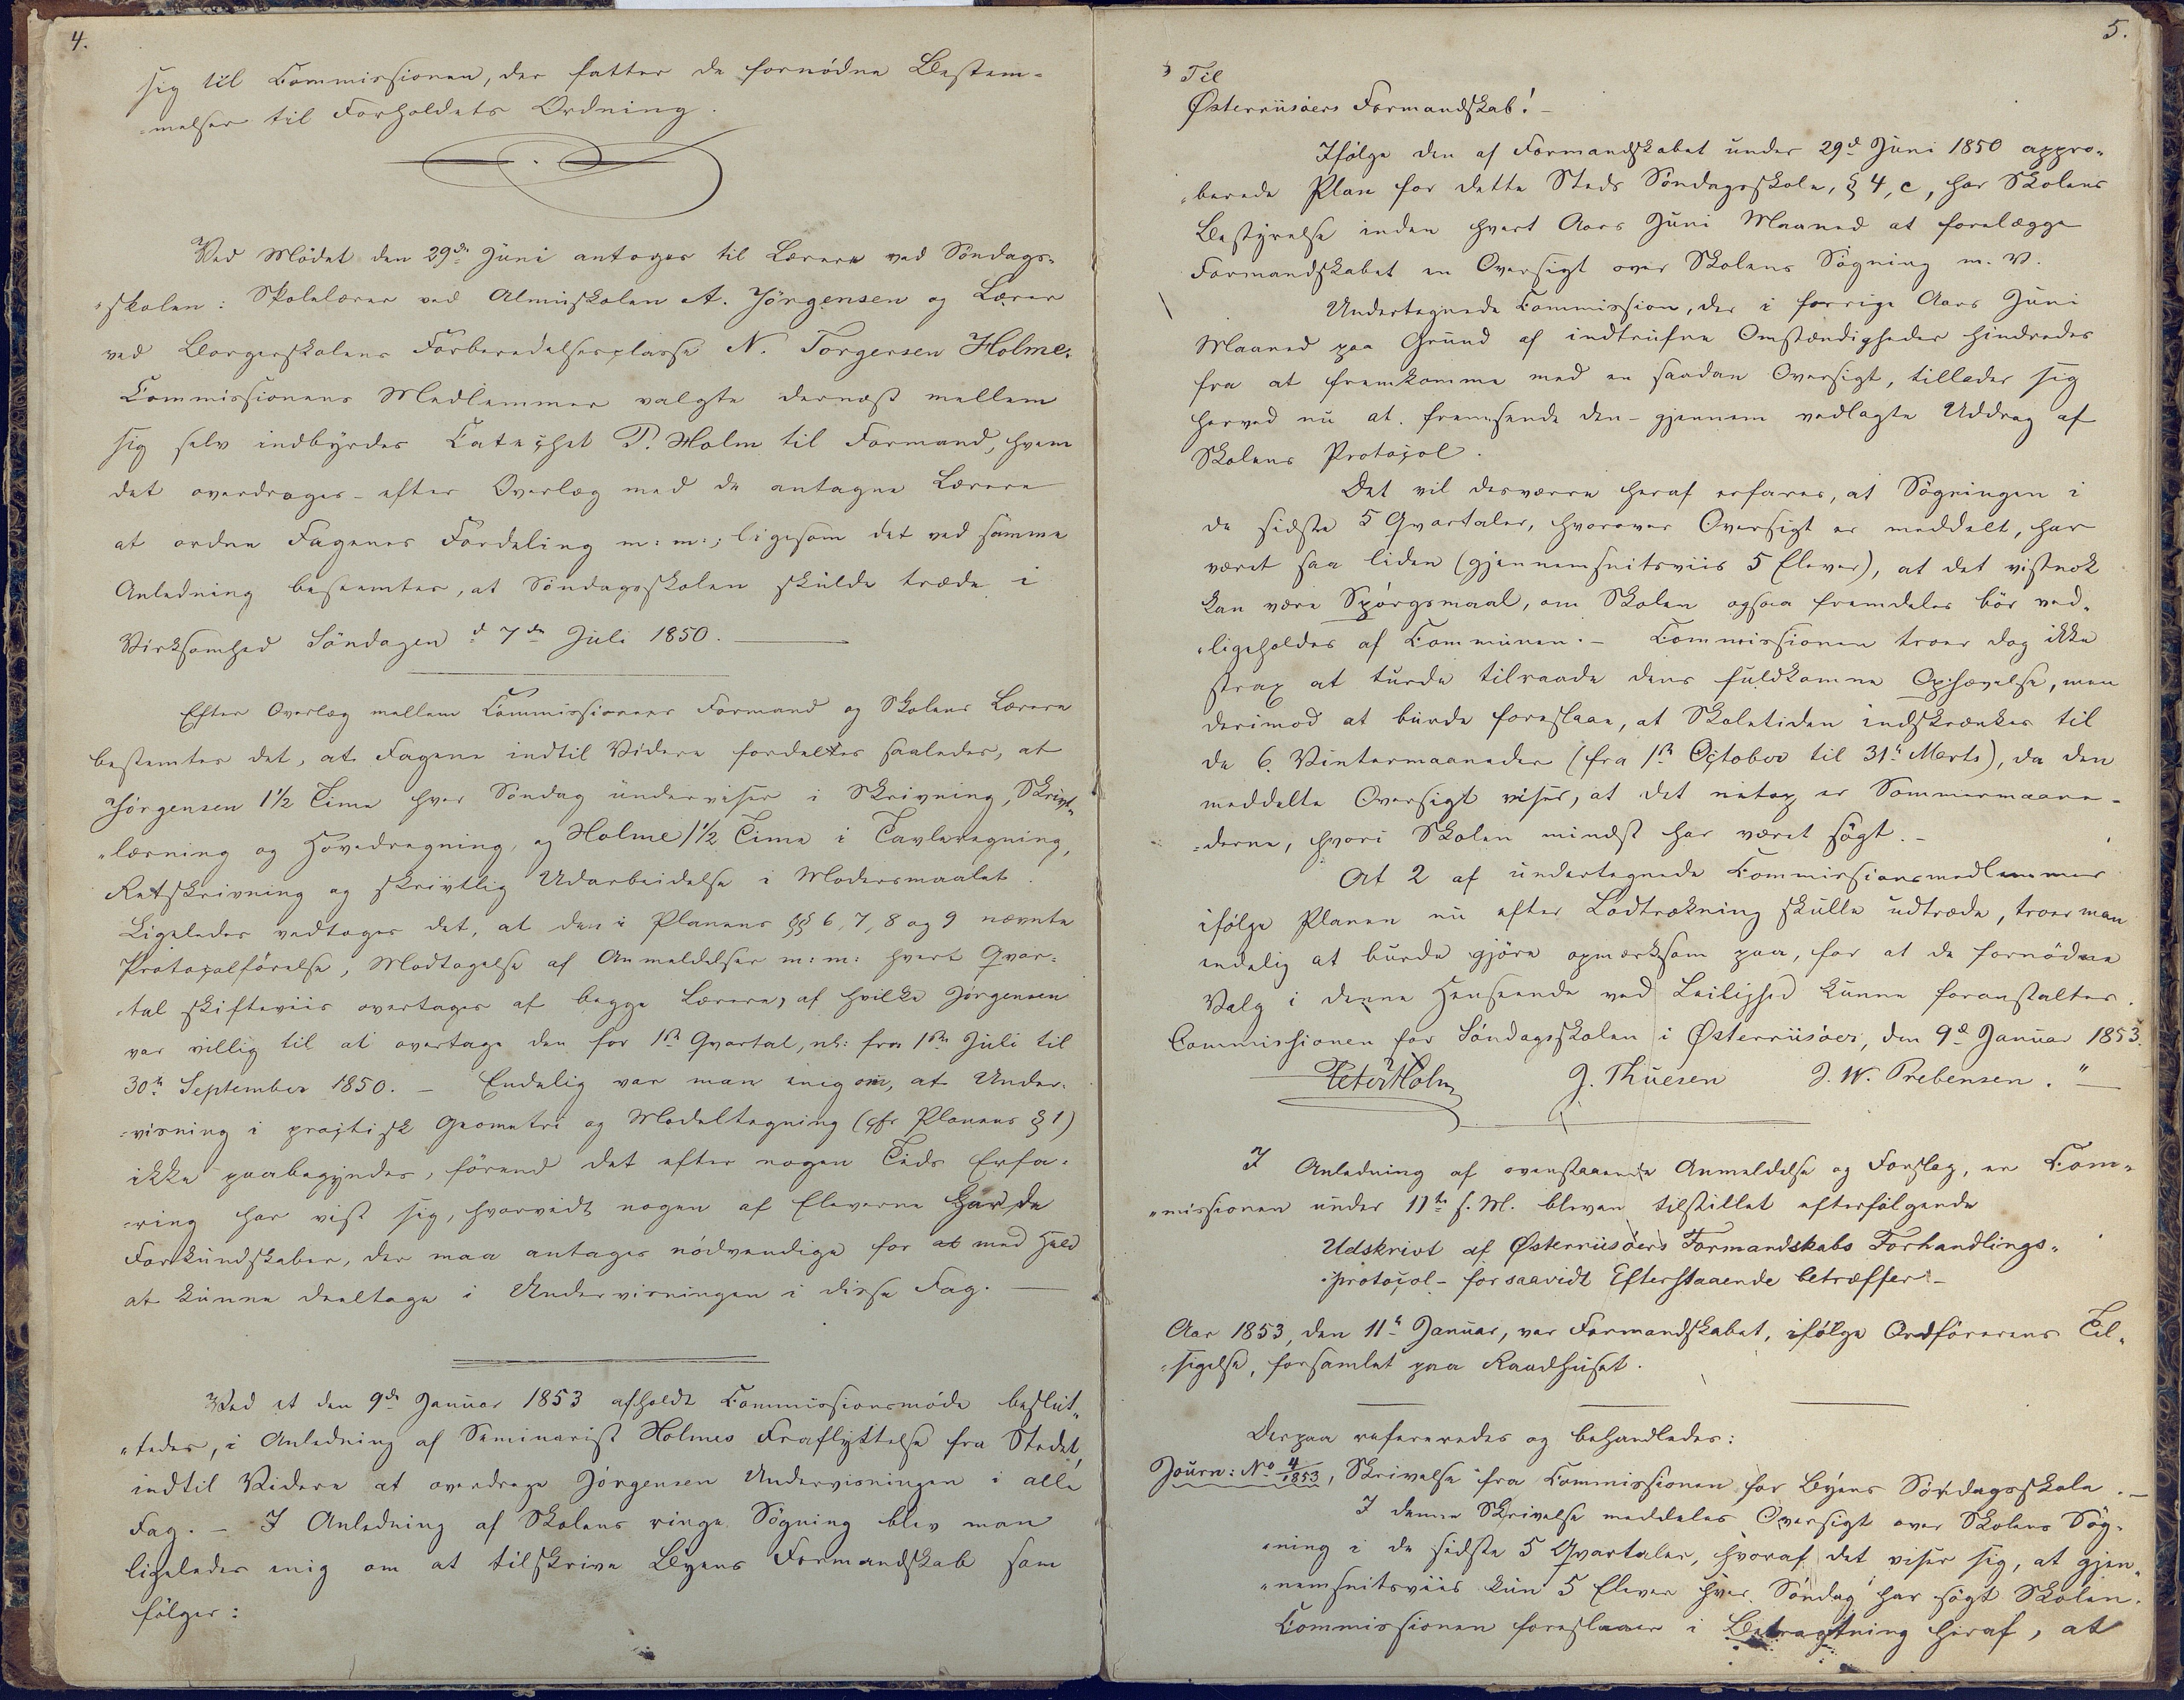 4.
sig til Commissionen, der fatter de fornødne Bestem-
-melser til Forholdets Ordning.
Ved Mødet den 29de Juni antoges til Lærere ved Søndags-
-skolen: Skolelærer ved Almueskolen A. Jørgensen og Lærer
ved Borgerskolens Forberedelsesclasse N. Torgersen Holme.
Commissionens Medlemmer valgte dernæst mellem
sig selv indbyrdes Catechet P. Holm til Formand, hvem
det overdroges - efter Overlæg med de antagne Lærere
at ordne Fagenes Fordeling m: m:; ligesom det ved samme
Anledning bestemtes, at Søndagsskolen skulde træde i
Virksomhed Søndagen d 7de Juli 1850.
Efter Overlæg mellem Commissionens Formand og Skolens Lærere
bestemtes det, at Fagene indtil Videre fordeltes saaledes, at
Jørgensen 1½ Time hver Søndag underviser i Skrivning, Skrivt-
-læsning og Hovedregning, og Holme 1½ Time i Tavleregning,
Retskrivning og skrivtlig Udarbeidelse i Modersmaalet.
Ligeledes vedtoges det, at den i Planens §§ 6, 7, 8 og 9 nævnte
Protocolførelse, Modtagelse af Anmeldelser m: m: hvert Qvar-
-tal skifteviis overtages af begge Lærere, af hvilke Jørgensen
var villig til at overtage den for 1ste Qvartal, nl: fra 1ste Juli til
30te September 1850. - Endelig var man enig om, at Under-
-visning i practisk Geometri og Modeltegning (cfr Planens § 1)
ikke paabegyndes, førend det efter nogen Tids Erfa-
-ring har vist sig, hvorvidt nogen af Eleverne har de
Forkundskaber, der maa antages nødvendige for at med Held
at kunne deeltage i Undervisningen i disse Fag.
Ved et den 9de Januar 1853 afholdt Commissionsmøde beslut-
-tedes, i Anledning af Seminarist Holmes Fraflyttelse fra Stedet,
indtil Videre at overdrage Jørgensen Undervisningen i alle
Fag. - I Anledning af Skolens ringe Søgning blev man
ligeledes enig om at tilskrive Byens Formandskab som
følger:
5.
Til
Østerriisøers Formandskab! -
Ifølge den af Formandskabet under 29d Juni 1850 appro-
-berede Plan for dette Steds Søndagsskole, § 4, c, har Skolens
Bestyrelse inden hvert Aars Juni Maaned at forelægge
Formandskabet en Oversigt over Skolens Søgning m. V.
Undertegnede Commission, der i forrige Aars Juni
Maaned paa Grund af indtrufne Omstændigheder hindredes
fra at fremkomme med en saadan Oversigt, tillader sig
herved nu at fremsende den - gjennem vedlagte Uddrag af
Skolens Protocol.
Det vil desværre heraf erfares, at Søgningen i
de sidste 5 Qvartaler, hvorover Oversigt er meddelt, har
været saa liden (gjennemsnitsviis 5 Elever), at det vistnok
kan være Spørgsmaal, om Skolen ogsaa fremdeles bør ved-
-ligeholdes af Communen. - Commissionen troer dog ikke
strax at turde tilraade dens fuldkomne Ophævelse, men
derimod at burde foreslaae, at Skoletiden indskrænkes til
de 6. Vintermaaneder (fra 1ste October til 31te Marts), da den
meddelte Oversigt viser, at det netop er Sommermaane-
-derne, hvori Skolen mindst har været søgt. -
At 2 af undertegnede Commissionsmedlemmer
ifølge Planen nu efter Lodtrækning skulle udtræde, troer man
endelig at burde gjøre opmærksom paa, for at de fornødne
Valg i denne Henseende ved Leilighed kunne foranstaltes.
Commissionen for Søndagsskolen i Østerriisøer, den 9d Januar 1853.
Peter Holm J. Thuesen J. W. Prebensen. "
I Anledning af ovenstaaende Anmeldelse og Forslag, er Com-
-missionen under 11te f. M. bleven tilstillet efterfølgende
Udskrivt af Østerriisøers Formandskabs Forhandlings-
-protocol - forsaavidt Efterstaaende betræffer -
Aar 1853, den 11te Januar, var Formandskabet, ifølge Ordførerens Til-
-sigelse, forsamlet paa Raadhuset.
Derpaa refereredes og behandledes:
Journ: No 4/1853, Skrivelse fra Commissionen for Byens Søndagsskole. -
I denne Skrivelse meddeles Oversigt over Skolens Søg-
-ning i de sidste 5 Qvartaler, hvoraf det viser sig, at gjen-
-nemsnitsviis kun 5 Elever hver Søndag har søgt Skolen.
Commissionen foreslaaer i Betragtning heraf, at